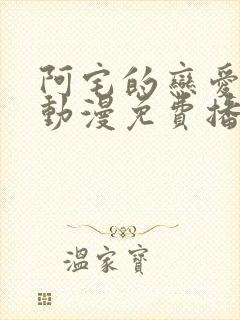 阿宅的戀愛
動漫免費播
溫家寶